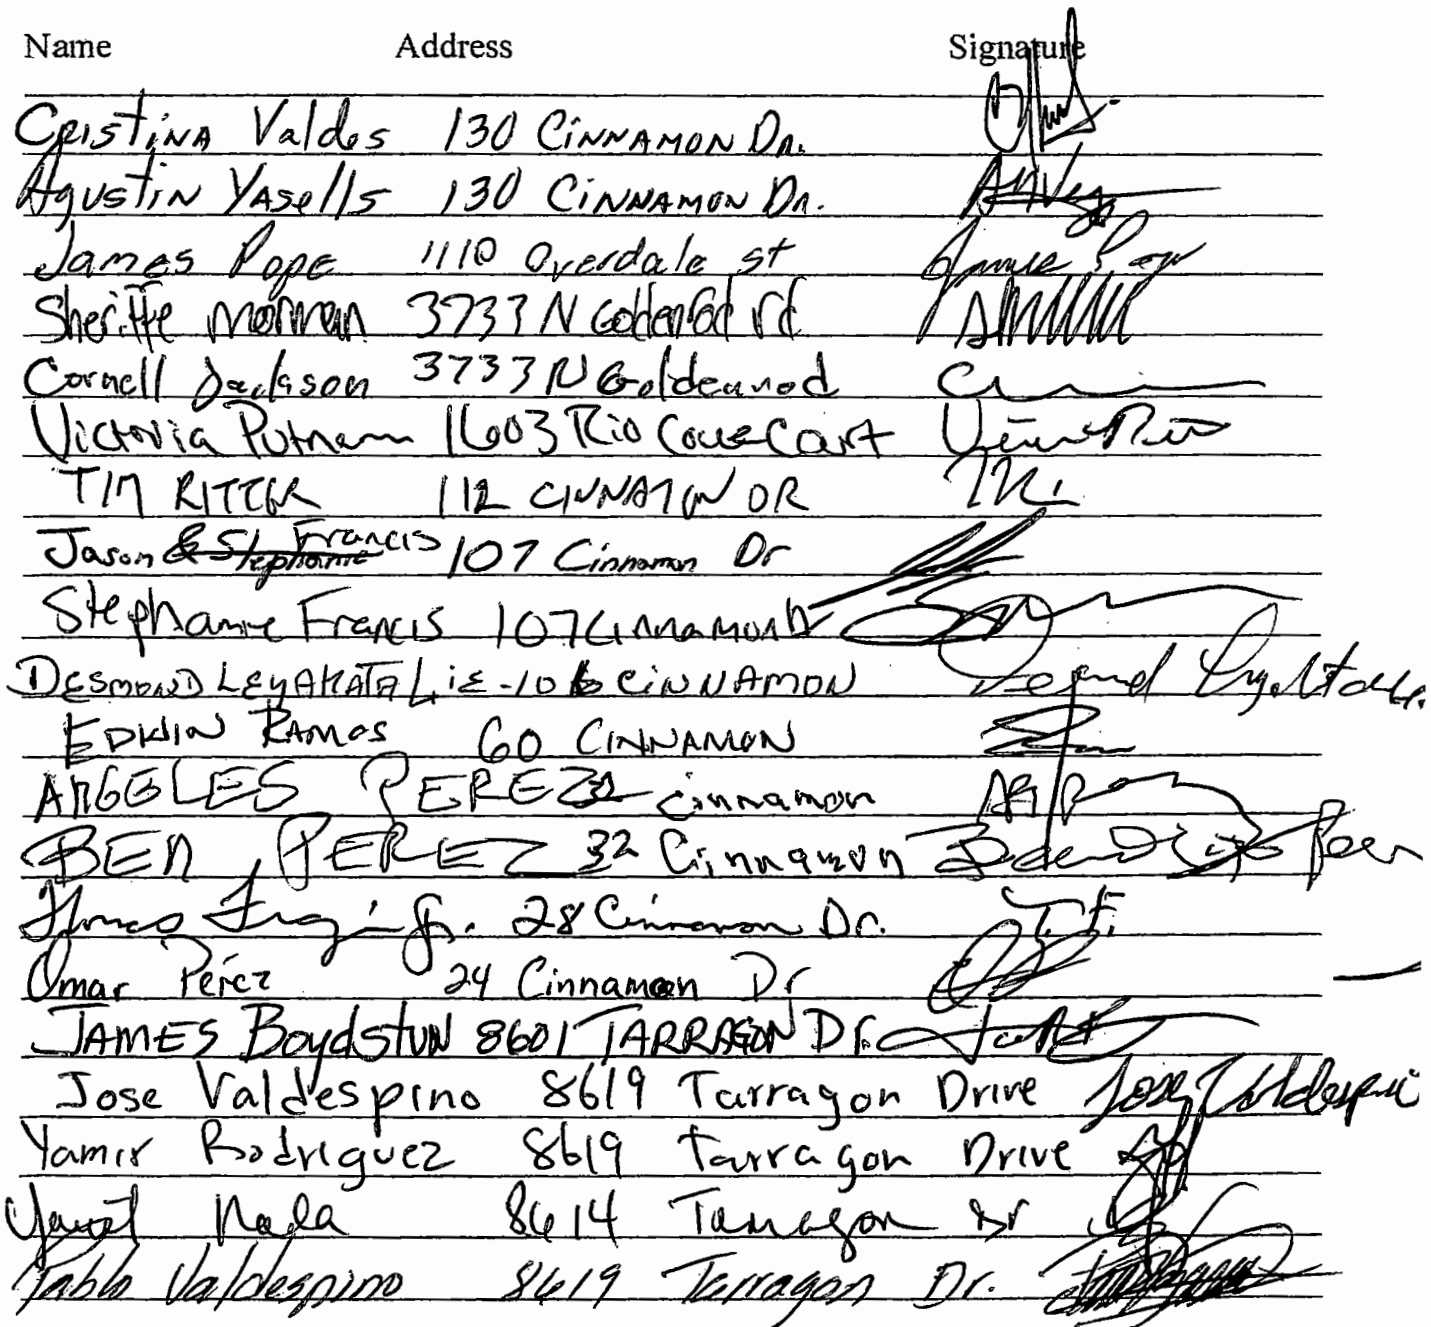 Name Address Signature
Cristina Valdes 130 Cinnamon Dr.
Agustin Yasells 130 Cinnamon Dr.
James Pope 1110 Overdale st James Pope
Sheriffe morman 3733 N Goldenrod rd
Cornell Jackson 3733 N Goldenrod
Victoria Putnam 1603 Rio Cove Court
TIM RITTER 112 CINNAMON DR
Jason & Stephanie Francis 107 Cinnamon Dr
Stephanie Francis 107 Cinnamon Dr
DESMOND LEYAKATALIE - 106 CINNAMON
EDWIN RAMOS 60 CINNAMON
ANGELES PEREZ 32 cinnamon
BEN PEREZ 32 Cinnamon
28 Cinnamon Dr. T.F.
Omar Pérez 24 Cinnamon Dr
JAMES Boydstun 8601 TARRAGON Dr.
Jose Valdespino 8619 Tarragon Drive Jose Valdespino
Yamir Rodriguez 8619 Tarragon Drive
8614 Tarragon Dr
Pablo Valdespino 8619 Tarragon Dr.